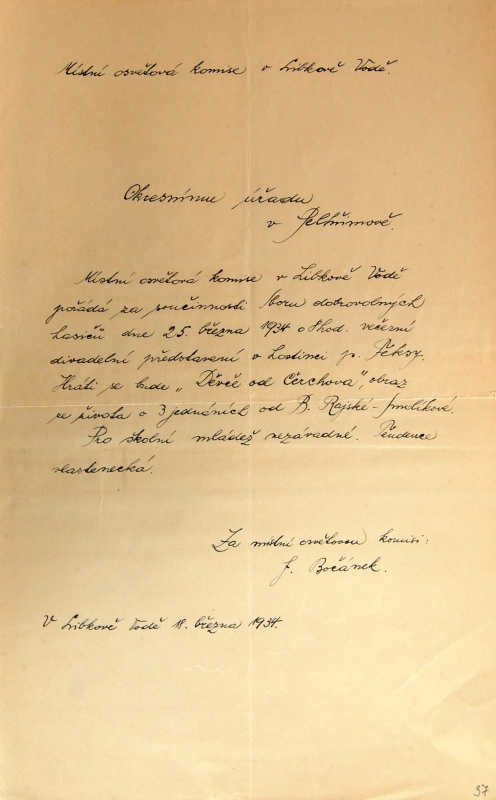 Místní osvětová komise v Libkově Vodě.
Okresnímu úřadu
v Pelhřimově.
Místní osvětová komise v Libkově Vodě
pořádá za součinnosti Sboru dobrovolných
hasičů dne 25. března 1934 o 8 hod. večerní
divadelní představení v hostinci p. Peksy.
Hráti se bude „Děvče od Čerchova", obraz
ze života o 3 jednáních od B. Rajské-Smolíkové.
Pro školní mládež nezávadné. Tendence
vlastenecká.
Za místní osvětovou komisi:
J. Bočánek.
V Libkově Vodě 18. března 1934.
37